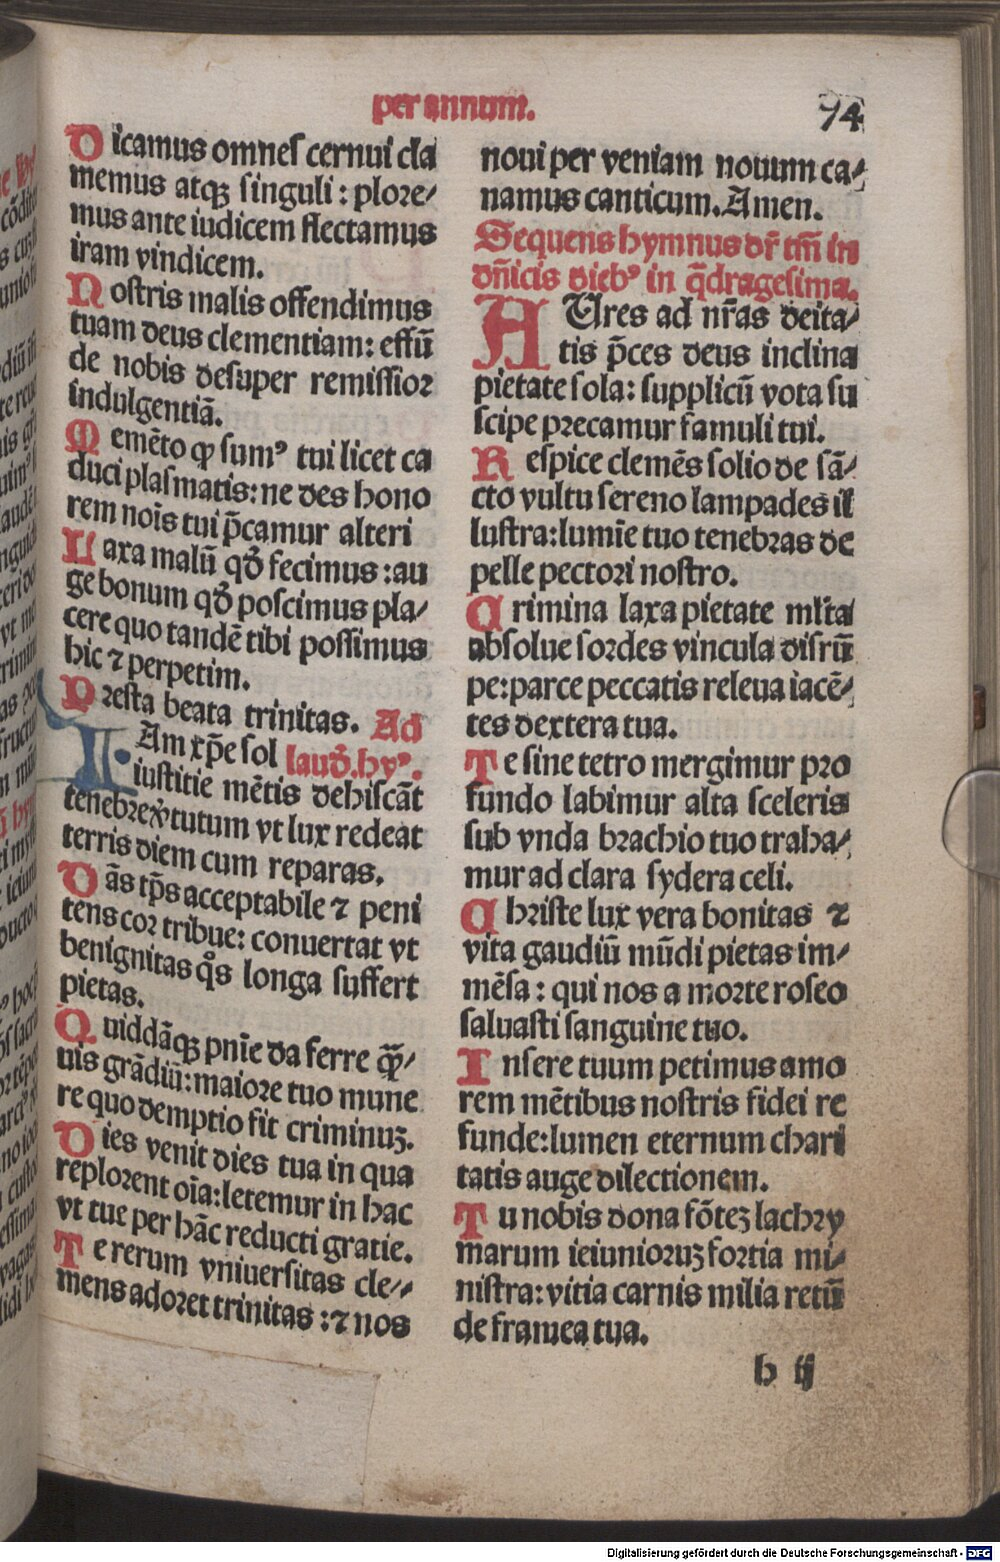 per annum.
94
Dicamus omnes cernui cla
memus atqꝫ singuli: plore/
mus ante iudicem flectamus
iram vindicem.
Nostris malis offendimus
tuam deus clementiam: effū
de nobis desuper remissior
indulgentiā.
Memēto ꝙ sumꝰ tui licet ca
duci plasmatis: ne des hono
rem noīs tui p̄camur alteri
Laxa malū qđ fecimus: au
ge bonum qđ poscimus pla/
cere quo tandē tibi possimus
hic ⁊ perpetim.
Presta beata trinitas. Ad
Iam xp̄e sol laud̄. hyꝰ.
iustitie mētis dehiscāt
tenebre v̓tutum vt lux redeat
terris diem cum reparas.
Dās tp̄s acceptabile ⁊ peni
tens cor tribue: conuertat vt
benignitas q̊s longa suffert
pietas.
Quiddāqꝫ pnīe da ferre q̄ꝫ/
uis grādiū: maiore tuo mune
re quo demptio fit criminuꝫ.
Dies venit dies tua in qua
replorent oīa: letemur in hac
vt tue per hāc reducti gratie.
Te rerum vniuersitas cle//
mens adoret trinitas: ⁊ nos
noui per veniam nouum ca/
namus canticum. Amen.
Sequens hymnus dr̄ tm̄ in
dn̄icis diebꝰ in q̄dragesima.
AUres ad nr̄as deita/
tis p̄ces deus inclina
pietate sola: supplicū vota su
scipe precamur famuli tui.
Respice clemēs solio de sā/
cto vultu sereno lampades il
lustra: lumīe tuo tenebras de
pelle pectori nostro.
Crimina laxa pietate ml̓ta
absolue sordes vincula disrū
pe: parce peccatis releua iacē/
tes dextera tua.
Te sine tetro mergimur pro
fundo labimur alta sceleris
sub vnda brachio tuo traha/
mur ad clara sydera celi.
Christe lux vera bonitas ⁊
vita gaudiū mūdi pietas im/
mēsa: qui nos a morte roseo
saluasti sanguine tuo.
Insere tuum petimus amo
rem mētibus nostris fidei re
funde: lumen eternum chari
tatis auge dilectionem.
Tu nobis dona fōteꝫ lachry
marum ieiunioruꝫ fortia mi/
nistra: vitia carnis milia retū
de framea tua.
h ij
Digitalisierung gefördert durch die Deutsche Forschungsgemeinschaft - DFG